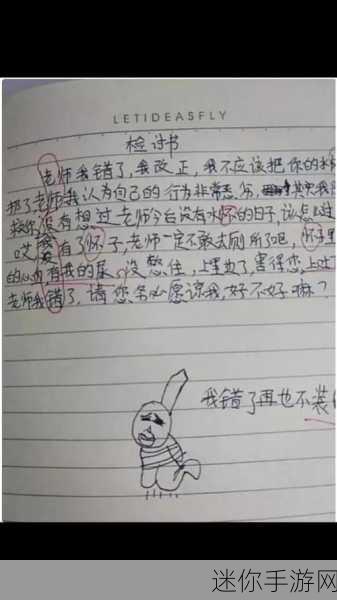 LETIDEASFLY
检讨书
老师我错了,我改正,我不应该把你的水杯
扔了老师我认为自己的行为非常恶劣,其实我
没有想过老师今后没有水杯的日子,该怎么过
哎 有了杯子,老师一定不敢去厕所了吧,杯子里
的心血,有我的尿,没憋住,上里边了,害得您,上过
老师我错了,请您务必愿谅我,好不好嘛?
我错了再也不装
迷你手游网